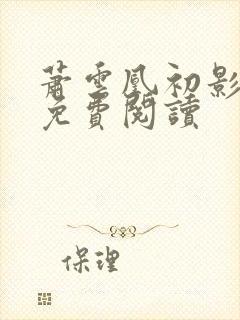 蕭雲凰初影
免費閱讀
保理